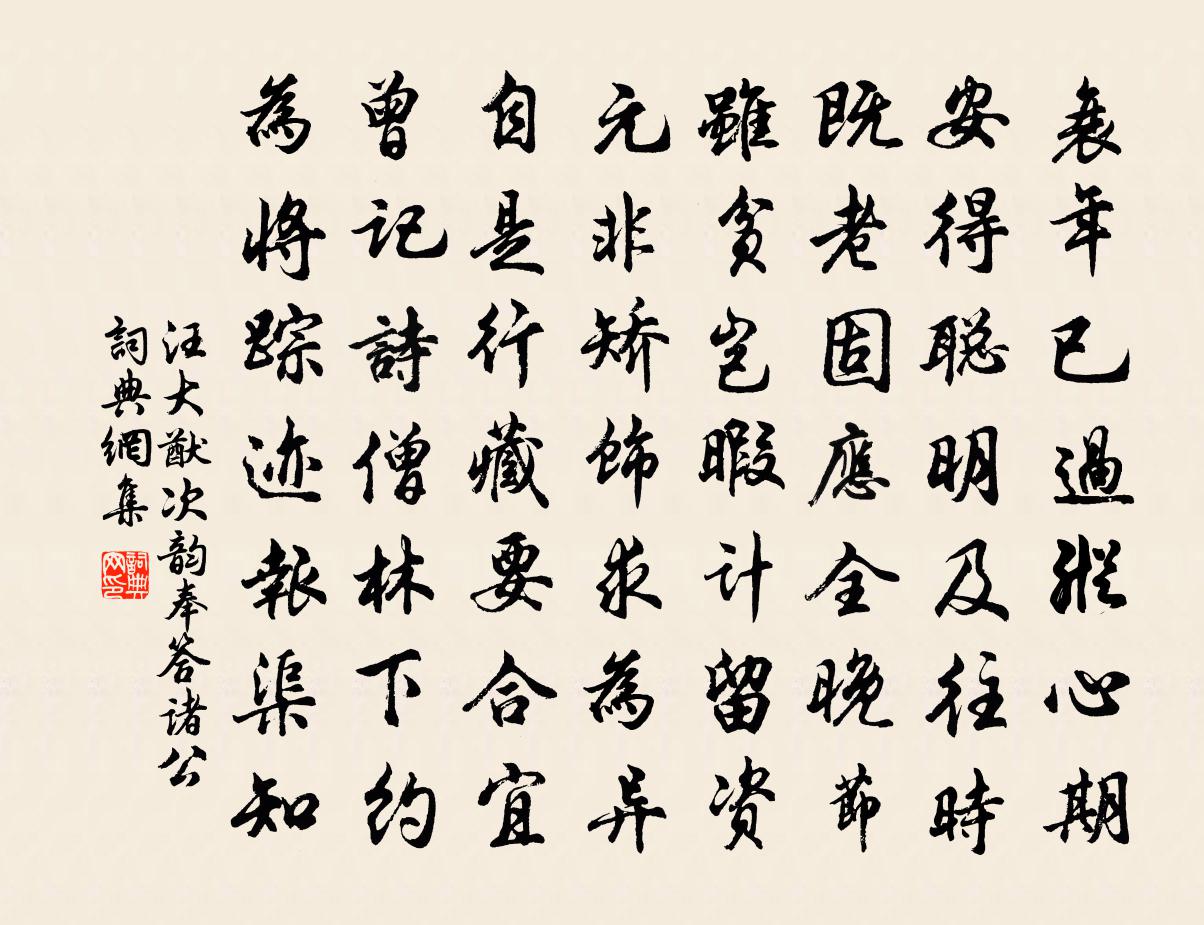 衰年已過縱心期
安得聪明及往時
既老固應全晚節
雖貧岂暇计留資
元非矫飾求為异
自是行藏要合宜
曾記詩僧林下约
為将踪迹報渠知
汪大猷次韵奉答诸公
詞典網集
詞典网印